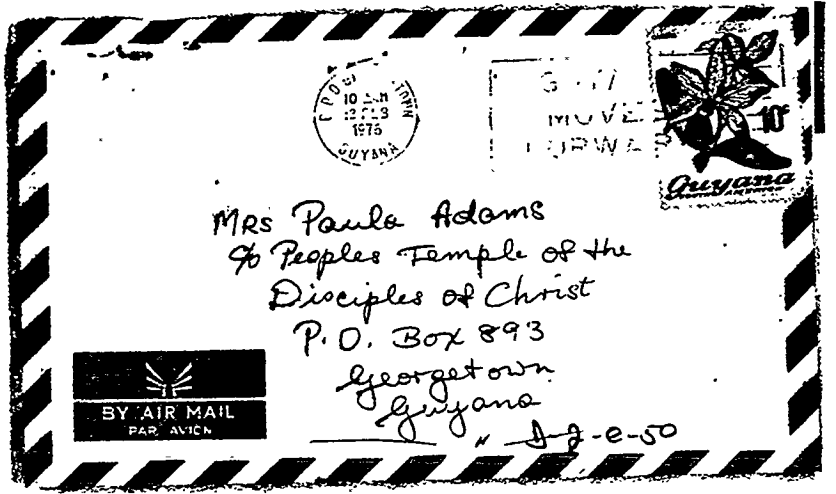 G.P.O. GEORGETOWN
10
1976
GUYANA
MOVE
FORWA
10c
Guyana
Mrs Paula Adams
c/o Peoples Temple of the
Disciples of Christ
P.O. Box 893
Georgetown
Guyana
BY AIR MAIL
PAR AVION
" D-2-e-50